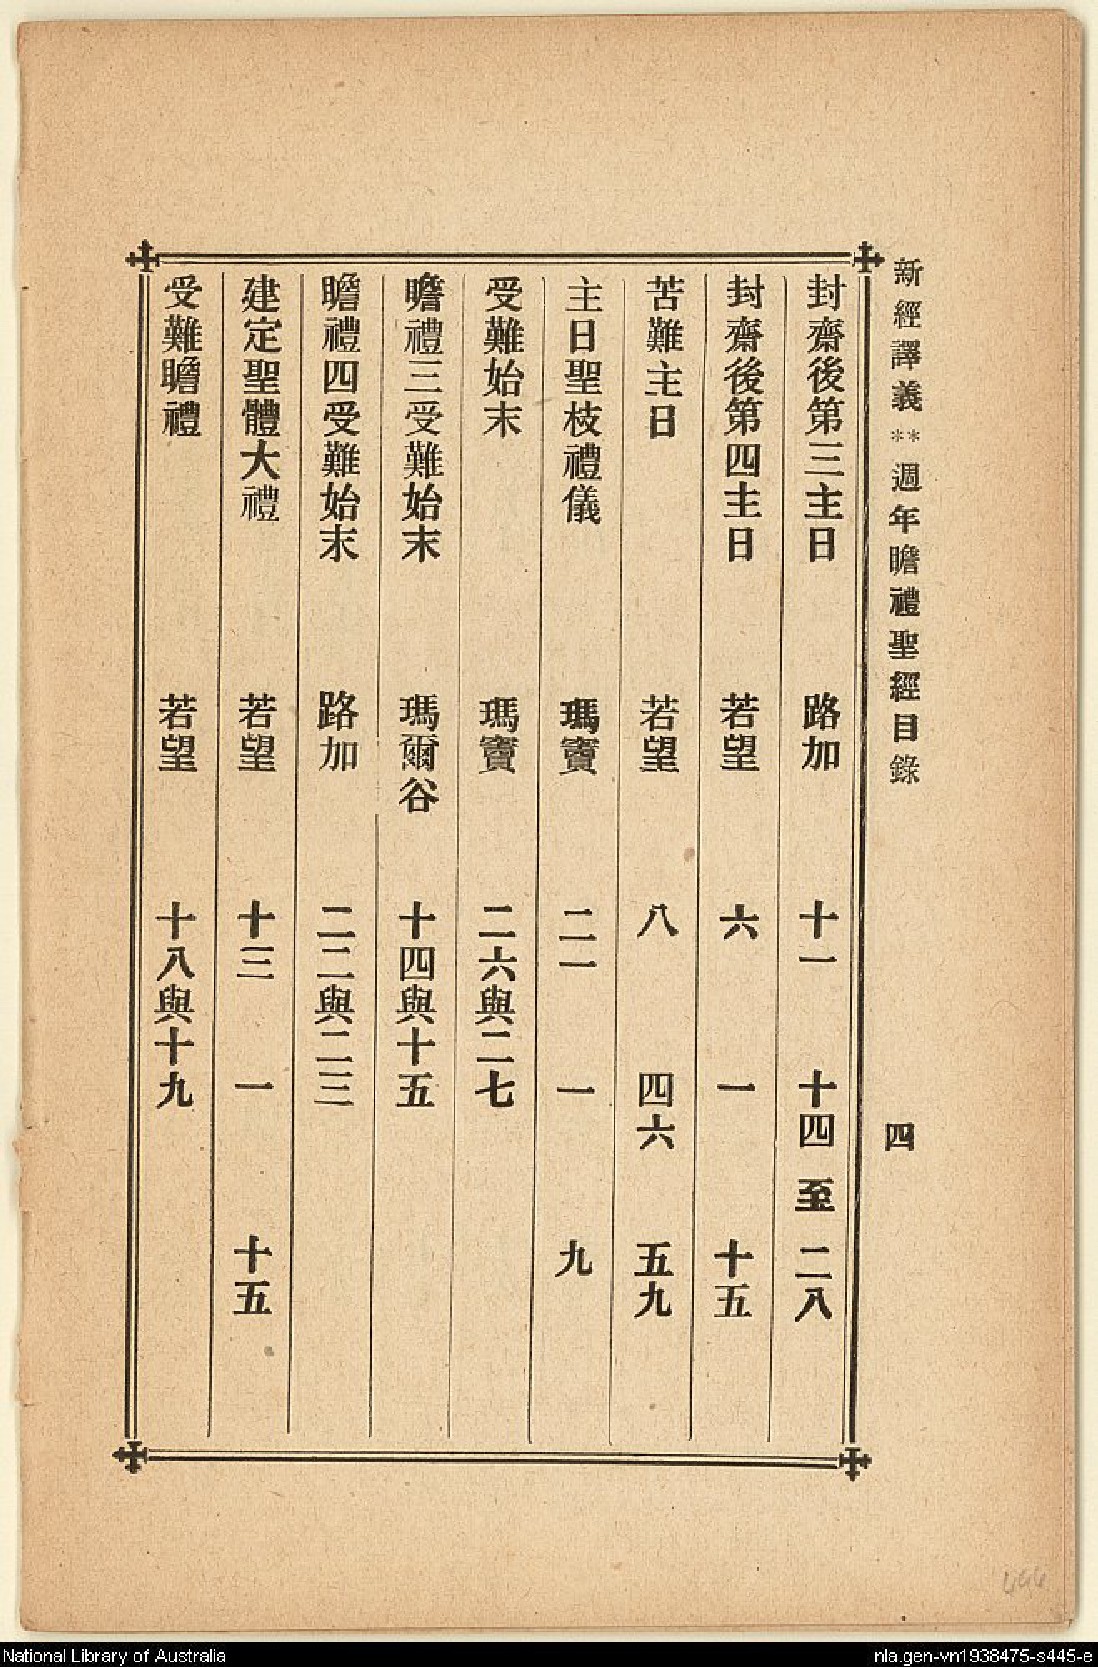 新經譯義**週年瞻禮聖經目錄 四
封齋後第三主日 路加 十一 十四 至 二八
封齋後第四主日 若望 六 一 十五
苦難主日 若望 八 四六 五九
主日聖枝禮儀 瑪竇 二一 一 九
受難始末 瑪竇 二六與二七
瞻禮三受難始末 瑪爾谷 十四與十五
瞻禮四受難始末 路加 二二與二三
建定聖體大禮 若望 十三 一 十五
受難瞻禮 若望 十八與十九
666
National Library of Australia
nla.gen-vn1938475-s445-e